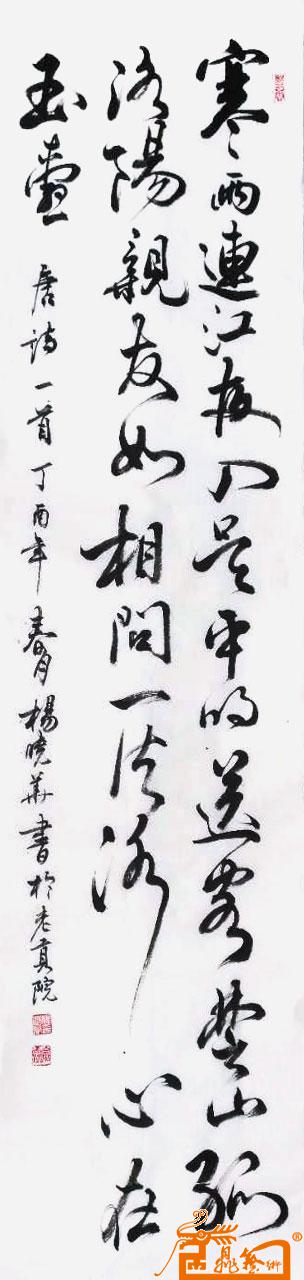 寒雨連江夜入吳平明送客楚山孤
洛陽親友如相問一片冰心在
玉壺
唐詩一首丁酉年春月楊曉華書於老院